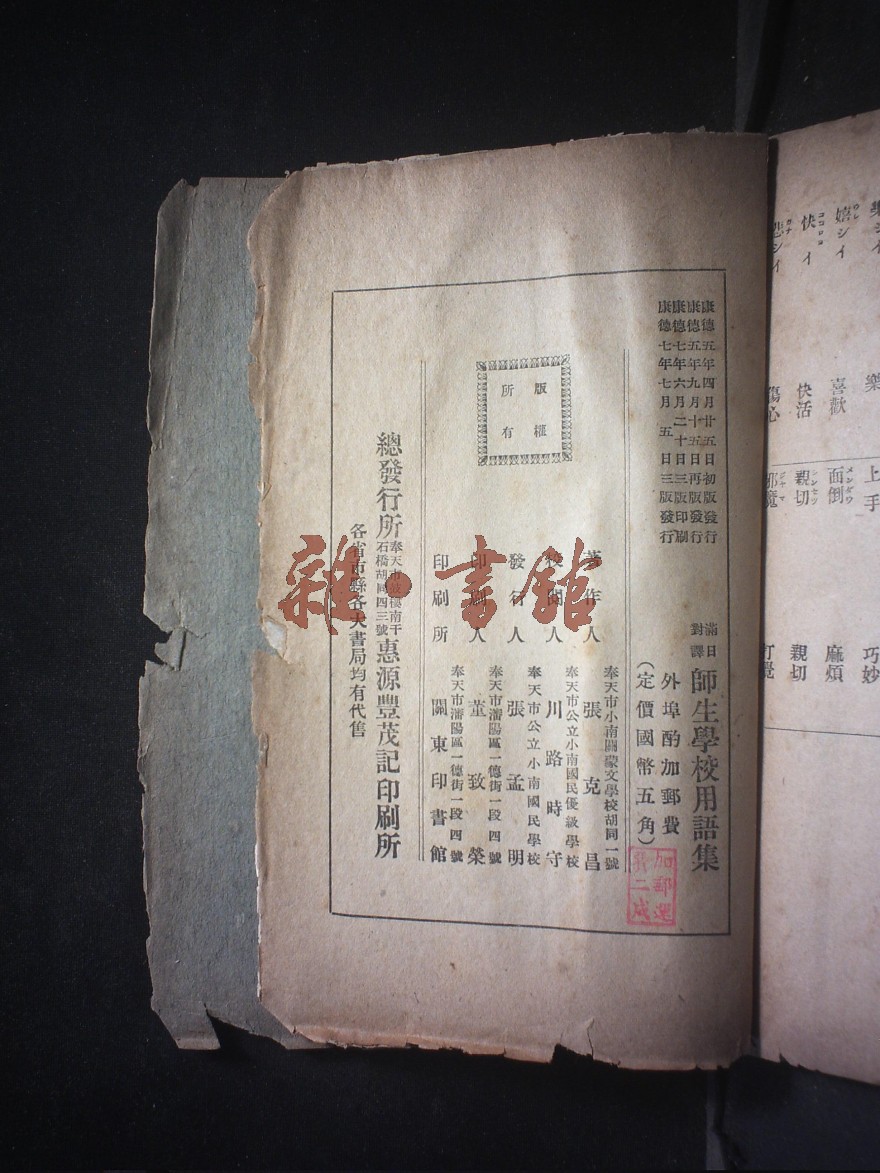 康德五年四月廿五日初版發行
康德五年九月十五日再版發行
康德七年六月二十日三版印刷
康德七年七月五日三版發行
滿日
對譯
師生學校用語集
外埠酌加郵費
(定價國幣五角)
加郵運
費二成
版權
所有
奉天市小南關蒙文學校胡同一號
著作人 張克昌
奉天市公立小南國民優級學校
校閱人 川路時守
奉天市公立小南國民學校
發行人 張孟明
奉天市瀋陽區一德街一段四號
印刷人 董致榮
奉天市瀋陽區一德街一段四號
印刷所 關東印書館
總發行所
奉天市鼓樓南干
石橋胡同四三號
惠源豐茂記印刷所
各省市縣各大書局均有代售
雜·書館
樂シイ 樂
嬉シイ 喜歡
快イ 快活
悲シイ 傷心
上手 巧妙
面倒 麻煩
親切 親切
邪魔 打攪